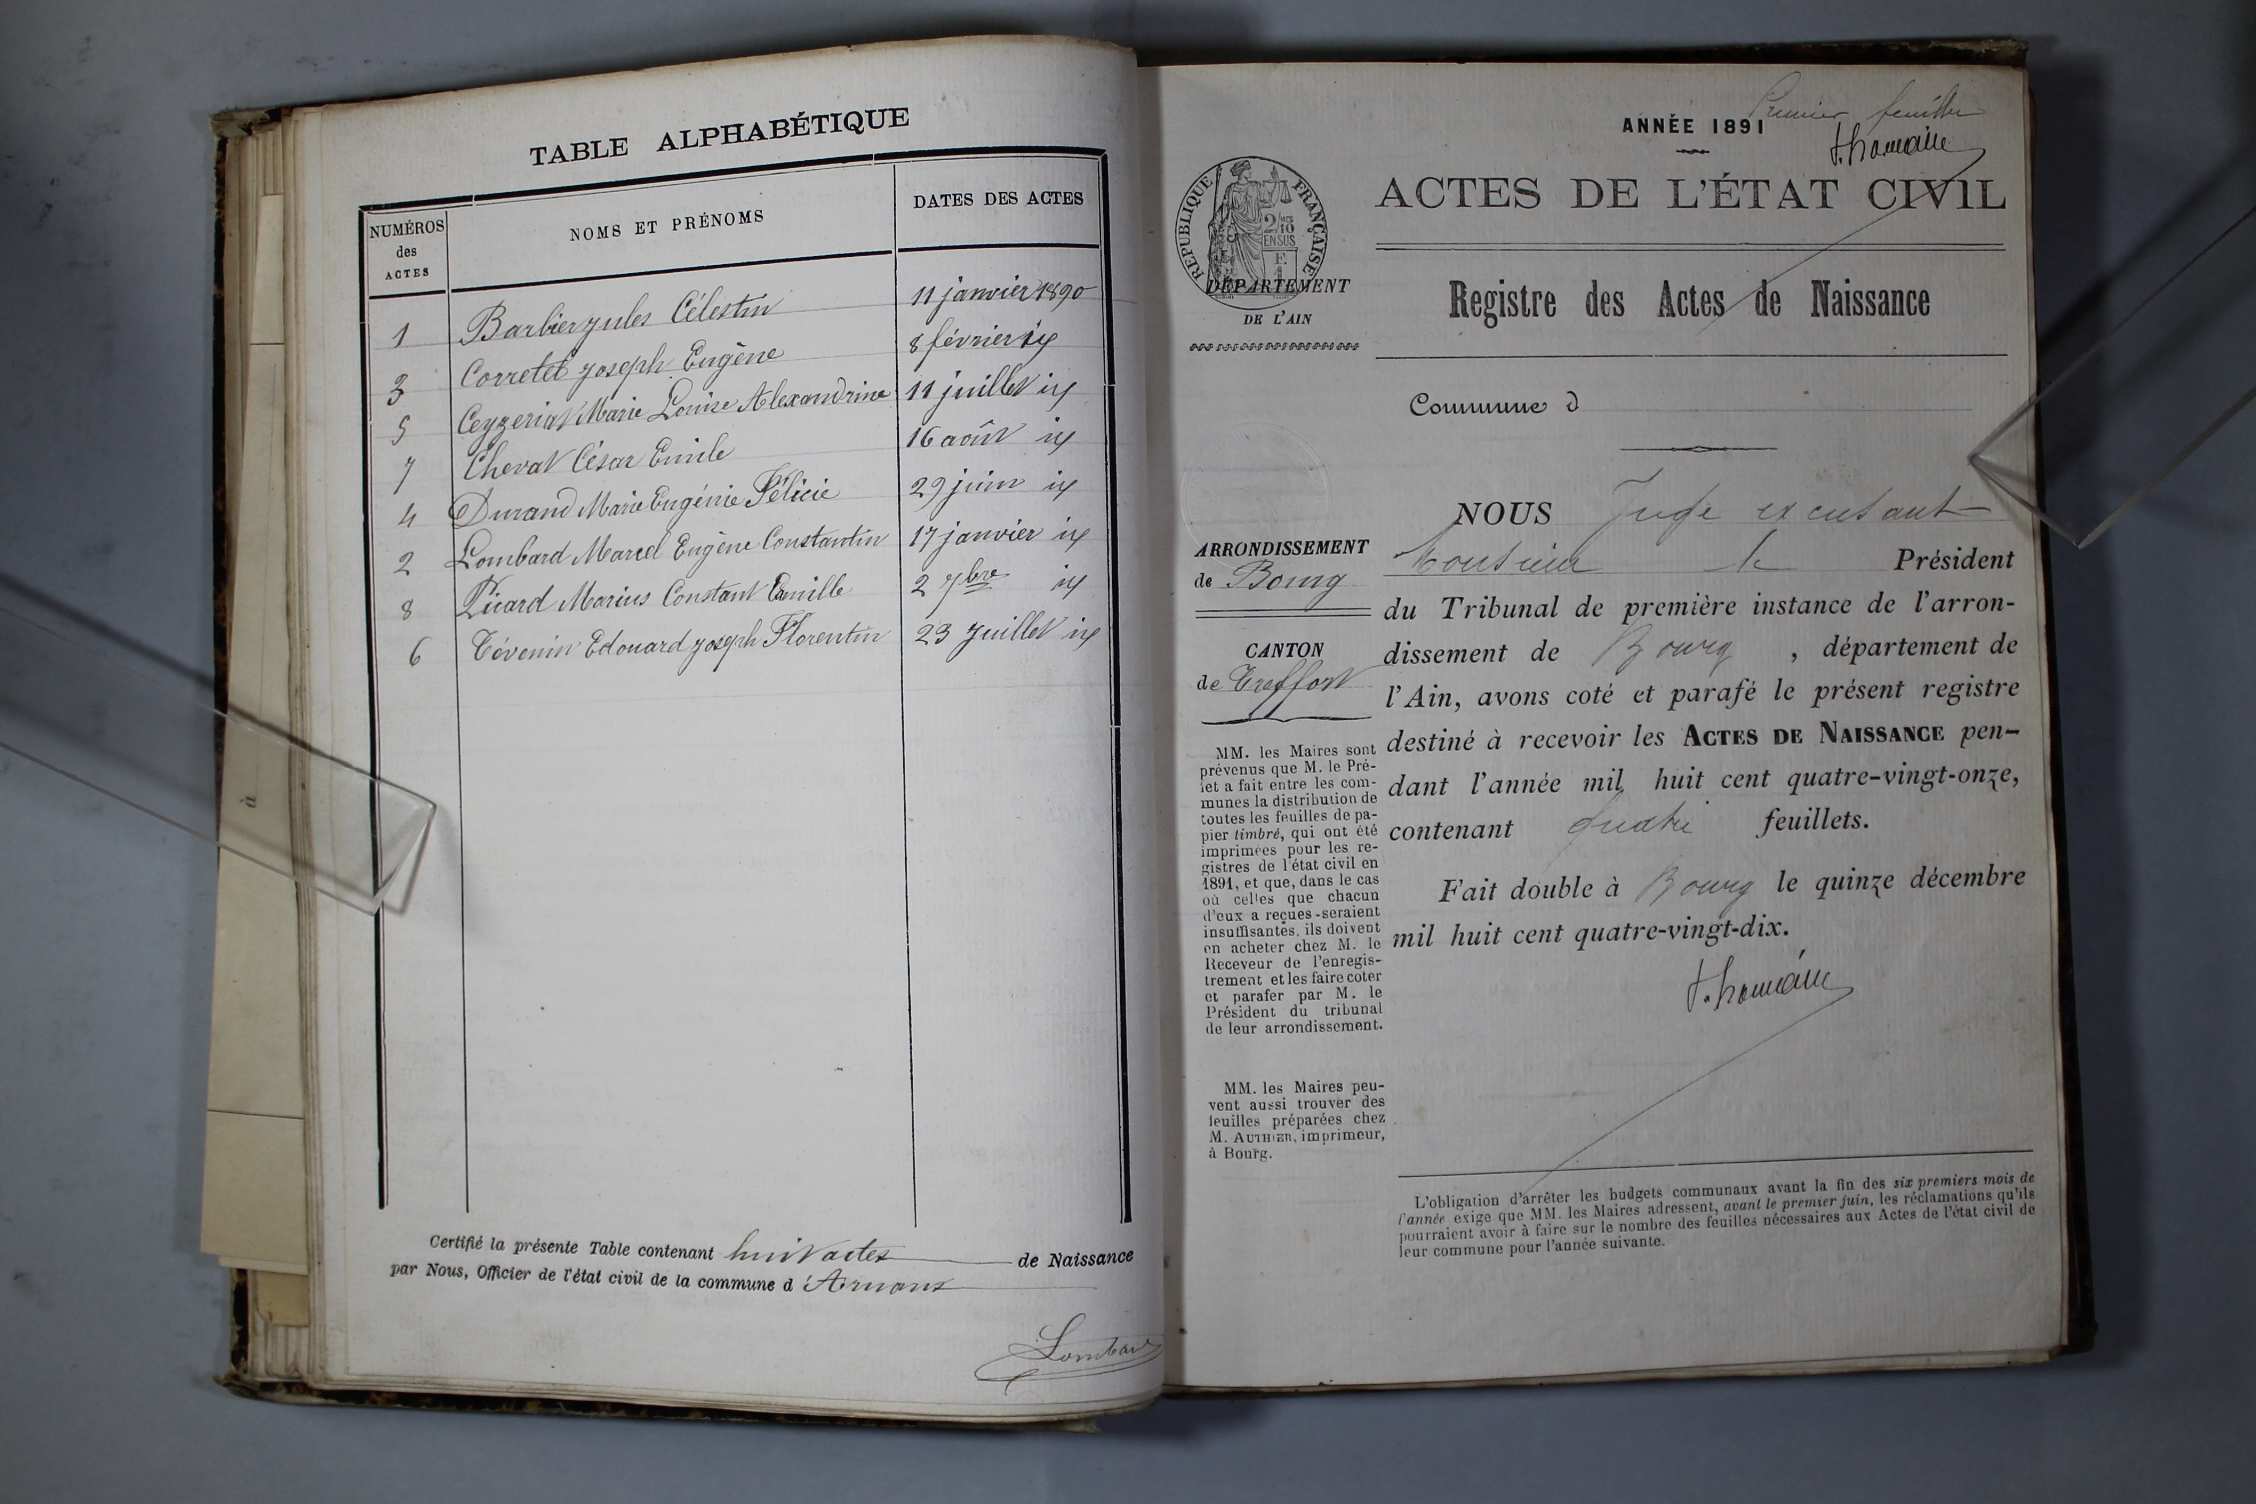 TABLE ALPHABÉTIQUE
NUMÉROS des ACTES
NOMS ET PRÉNOMS
DATES DES ACTES
1 Barbier Jules Célestin 11 janvier 1890
3 Corretel Joseph Eugène 8 février id
5 Ceyzeriat Marie Louise Alexandrine 11 juillet id
7 Chevat César Emile 16 août id
4 Durand Marie Eugénie Félicie 29 juin id
2 Lombard Marcel Eugène Constantin 17 janvier id
8 Picard Marius Constant Camille 2 7bre id
6 Tévenin Edouard Joseph Florentin 23 Juillet id
Certifié la présente Table contenant huit actes de Naissance
par Nous, Officier de l'état civil de la commune d'Arnans
Lombard
Premier feuillet
ANNÉE 1891
ACTES DE L'ÉTAT CIVIL
RÉPUBLIQUE FRANÇAISE
2/10 EN SUS
DÉPARTEMENT
DE L'AIN
Registre des Actes de Naissance
Commune d
NOUS Juge excusant
Monsieur le Président
du Tribunal de première instance de l'arron-
dissement de Bourg, département de
l'Ain, avons coté et parafé le présent registre
destiné à recevoir les ACTES DE NAISSANCE pen-
dant l'année mil huit cent quatre-vingt-onze,
contenant quatre feuillets.
Fait double à Bourg le quinze décembre
mil huit cent quatre-vingt-dix.
ARRONDISSEMENT
de Bourg
CANTON
de Treffort
MM. les Maires sont
prévenus que M. le Pré-
fet a fait entre les com-
munes la distribution de
toutes les feuilles de pa-
pier timbré, qui ont été
imprimées pour les re-
gistres de l'état civil en
1891, et que, dans le cas
où celles que chacun
d'eux a reçues seraient
insuffisantes, ils doivent
en acheter chez M. le
Receveur de l'enregis-
trement et les faire coter
et parafer par M. le
Président du tribunal
de leur arrondissement.
MM. les Maires peu-
vent aussi trouver des
feuilles préparées chez
M. AUTHIER, imprimeur,
à Bourg.
L'obligation d'arrêter les budgets communaux avant la fin des six premiers mois de
l'année exige que MM. les Maires adressent, avant le premier juin, les réclamations qu'ils
pourraient avoir à faire sur le nombre des feuilles nécessaires aux Actes de l'état civil de
leur commune pour l'année suivante.